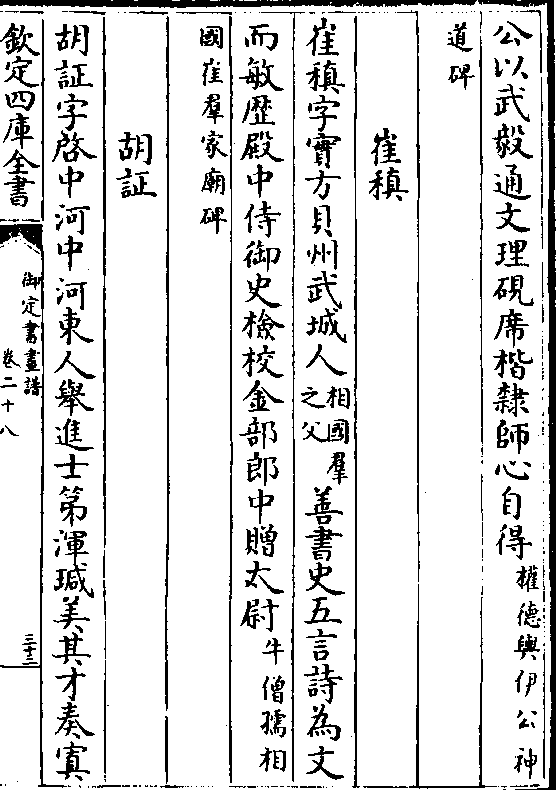 公以武毅通文理硯席楷隸師心自得權德輿伊公神
道碑
崔稹
崔稹字實方貝州武城人相國羣之父善書史五言詩為文
而敏歴殿中侍御史檢校金部郎中贈太尉牛僧孺相
國崔羣家廟碑
胡証
胡証字啓中河中河東人舉進士第渾瑊美其才奏寘
欽定四庫全書
御定書畫譜
卷二十八
三十三